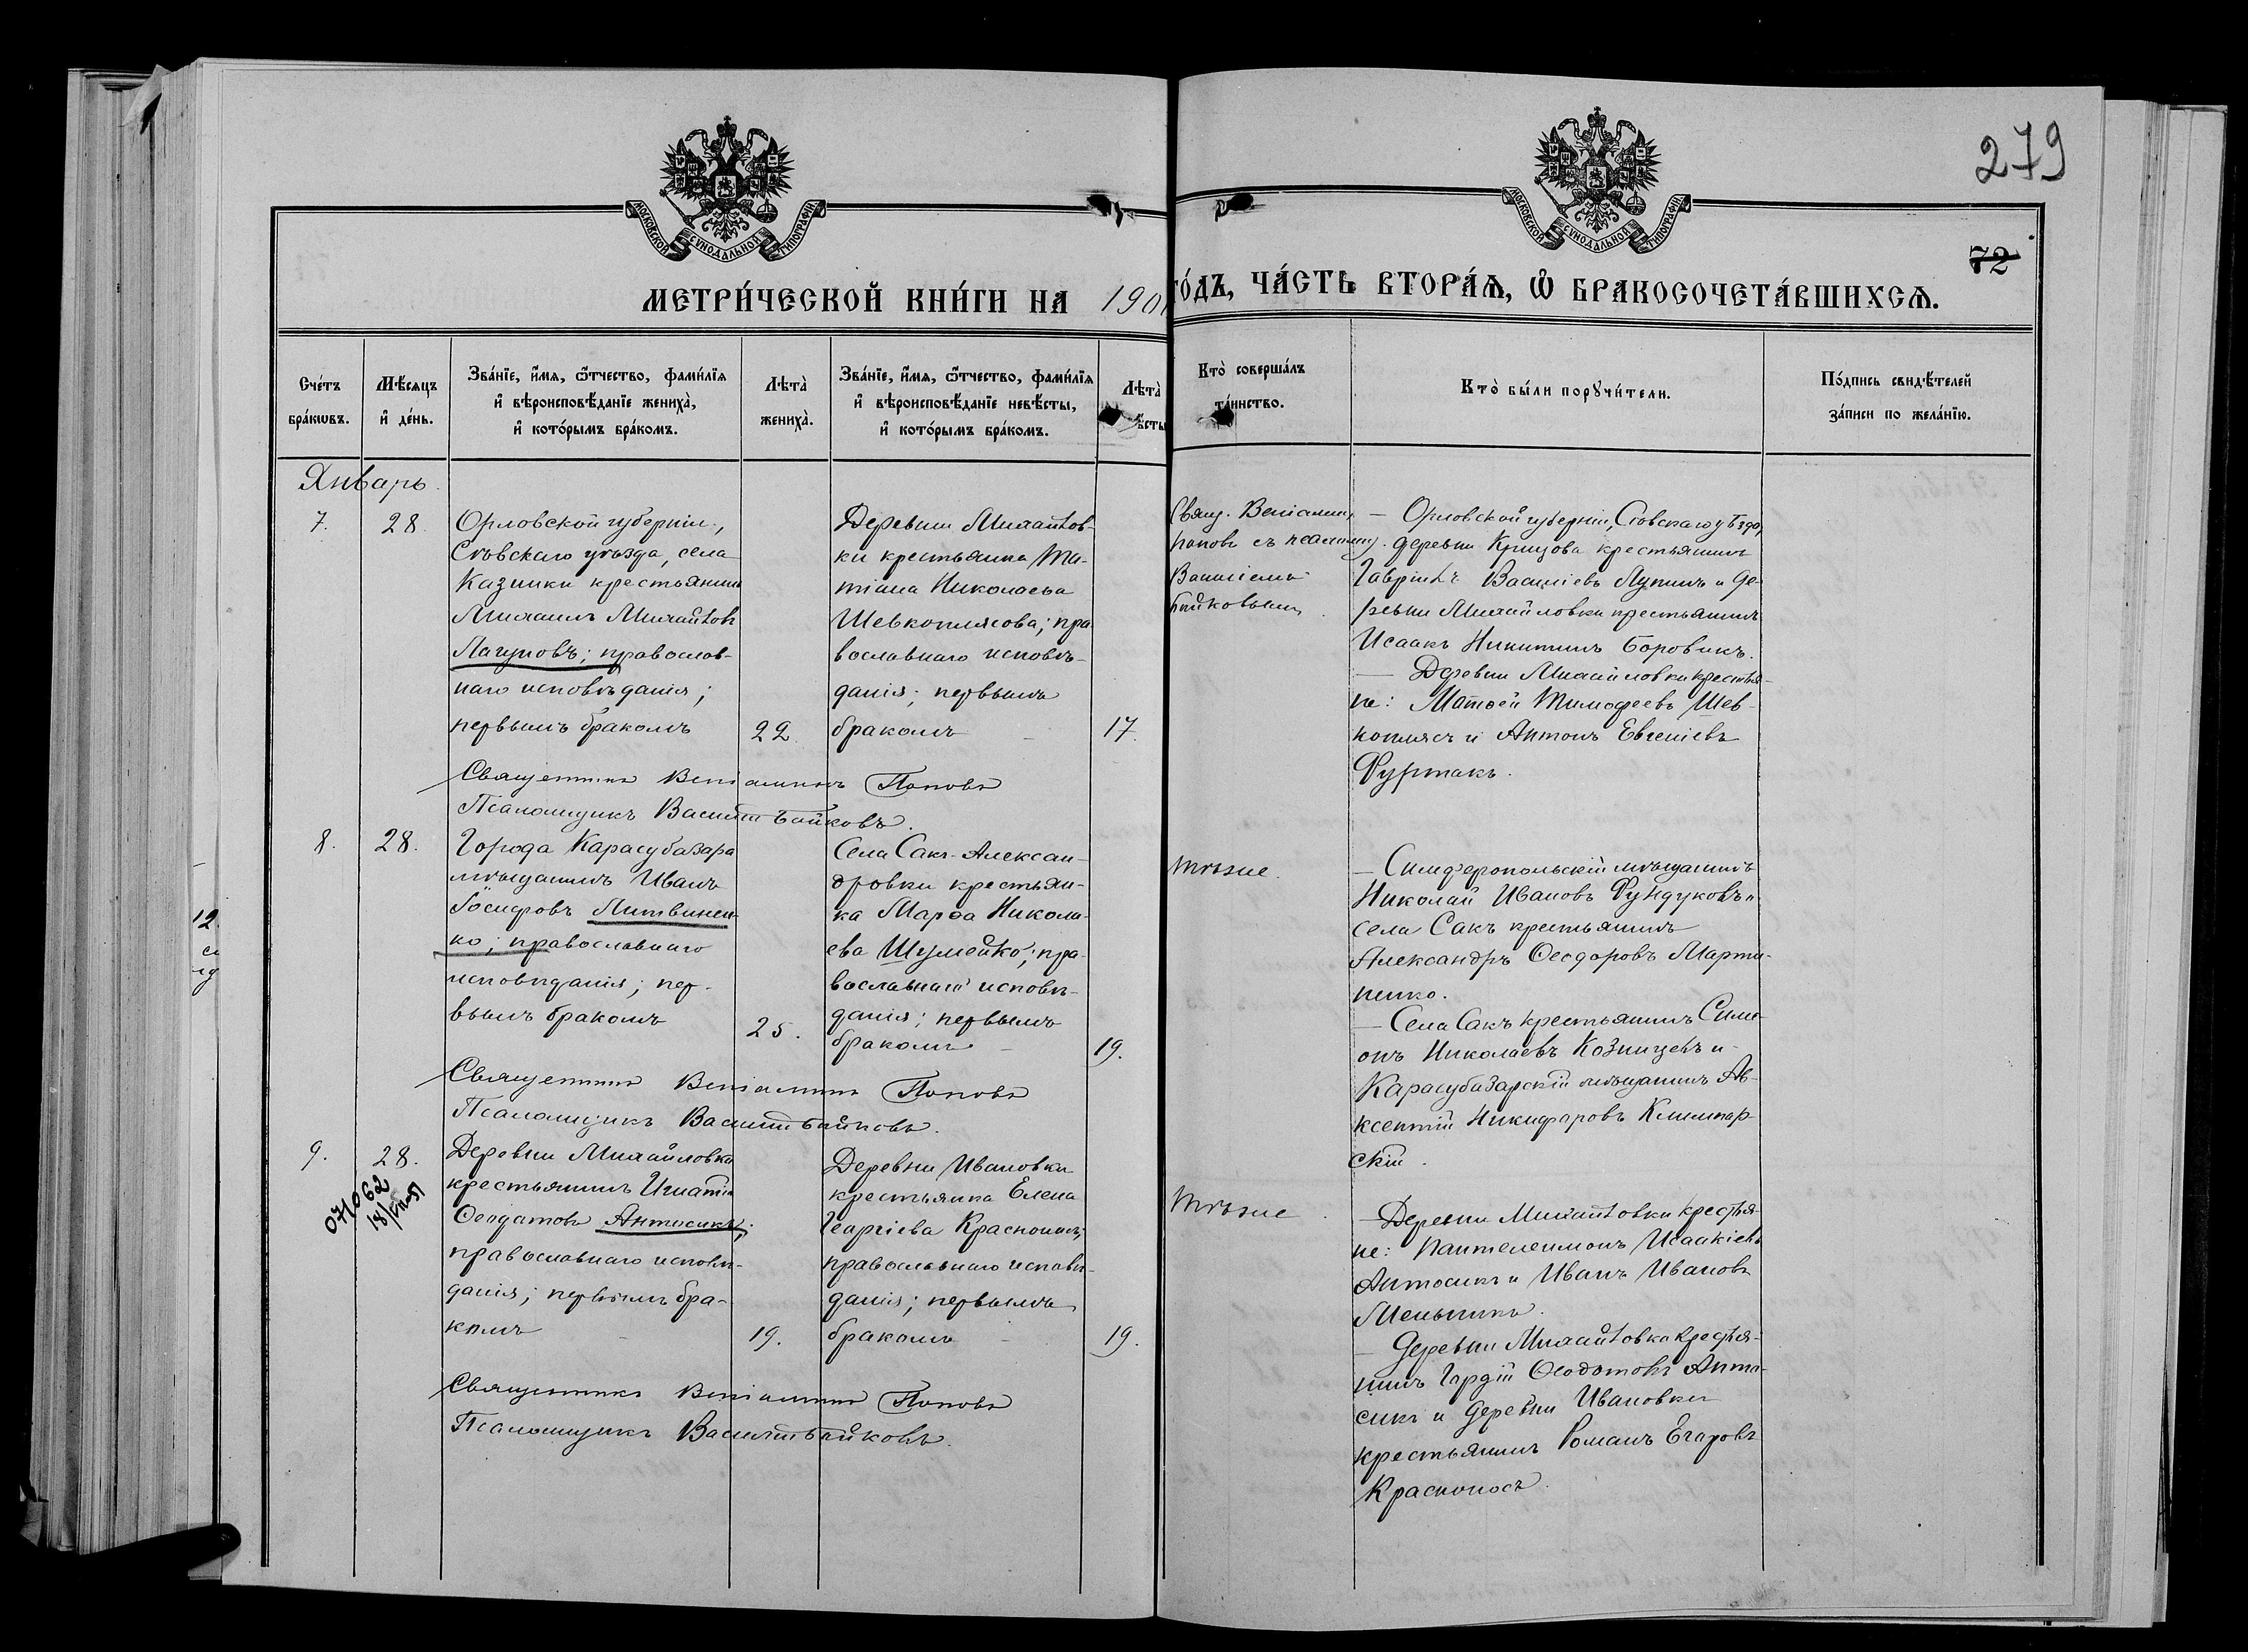 МОСКОВСКОЙ СѴНОДАЛЬНОЙ ТИПОГРАФІИ
МОСКОВСКОЙ СѴНОДАЛЬНОЙ ТИПОГРАФІИ
279
72
МЕТРИ́ЧЕСКОЙ КНИ́ГИ НА 190
ГО́ДЪ, ЧА́СТЬ ВТОРА́Ѧ, Ѡ҆ БРАКОСОЧЕТА́ВШИХСѦ.
Сче́тъ
бра́кѡвъ.
Мѣ́сяцъ
и҆ де́нь.
Зва́нїе, и҆́мѧ, ѻ҆́тчество, фами́лїѧ
и҆ вѣроисповѣ́данїе жениха̀,
и҆ кото́рымъ бра́комъ.
Лѣта̀
жениха̀.
Зва́нїе, и҆́мѧ, ѻ҆́тчество, фами́лїѧ
и҆ вѣроисповѣ́данїе невѣ́сты,
и҆ кото́рымъ бра́комъ.
Лѣта̀
ѣсты
Кто̀ соверша́лъ
та́инство.
Кто̀ бы́ли порꙋчи́тели.
По́дпись свидѣ́телей
за́писи по жела́нїю.
Январь.
7.
28
Орловской губерніи,
Сѣвскаго уѣзда, села
Казинки крестьянинъ
Михаилъ Михайловъ
Лагуновъ; православ-
наго исповѣданія;
первымъ бракомъ
22
Деревни Михайлов-
ки крестьянка Та-
тіана Николаева
Шевкоплясова; пра
вославнаго исповѣ-
данія; первымъ
бракомъ
17.
Свящ. Веніамин
Поповъ съ псаломщ.
Василіемъ
Байковымъ
— Орловской губерніи, Сѣвскаго уѣзда,
деревни Крицова крестьянинъ
Гавріилъ Василіевъ Лупинъ и де-
ревни Михайловки крестьянинъ
Исаакъ Никитинъ Боровикъ.
— Деревни Михайловки крестья-
не: Матѳей Тимофеевъ Шев-
коплясъ и Антонъ Евгеніевъ
Фуртакъ.
Священникъ Веніаминъ Поповъ
Псаломщикъ Василій Байковъ.
8.
28.
Города Карасубазара
мѣщанинъ Иванъ
Іосифовъ Литвинен
ко; православнаго
исповѣданія; пер-
вымъ бракомъ
25.
Села Сакъ-Алексан-
дровки крестьян-
ка Марѳа Никола-
ева Шумейко; пра-
вославнаго исповѣ-
данія; первымъ
бракомъ
19.
Тѣже.
— Симферопольскій мѣщанинъ
Николай Ивановъ Фундуковъ и
села Сакъ крестьянинъ
Александръ Ѳеодоровъ Марти-
ненко.
— Села Сакъ крестьянинъ Симе-
онъ Николаевъ Козинцевъ и
Карасубазарскій мѣщанинъ Ав-
ксентій Никифоровъ Климпар-
скій.
Священникъ Веніаминъ Поповъ
Псаломщикъ Василій Байковъ.
9.
28.
Деревни Михайловки
крестьянинъ Игнатій
Ѳеодотовъ Антосикъ;
православнаго исповѣ-
данія; первымъ бра-
комъ
19.
Деревни Ивановки
крестьянка Елена
Георгіева Красноносъ;
православнаго исповѣ-
данія; первымъ
бракомъ
19.
Тѣже
— Деревни Михайловки крестья-
не: Пантелеимонъ Исаакіевъ
Антосикъ и Иванъ Ивановъ
Мельникъ.
— Деревни Михайловки крестья-
нинъ Гордій Ѳеодотовъ Анто-
сикъ и деревни Ивановки
крестьянинъ Романъ Егоровъ
Красноносъ.
Священникъ Веніаминъ Поповъ
Псаломщикъ Василій Байковъ.
12.